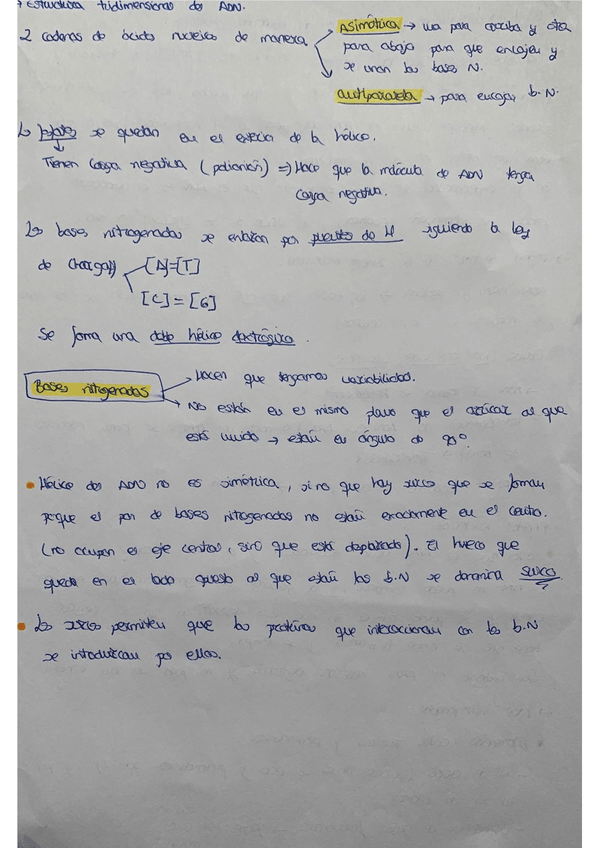 → Estructura tridimensional del ADN.
2 cadenas de ácido nucleico de manera
Asimétrica → una para arriba y otra
para abajo para que encajen y
se unan las bases N.
antiparalela → para encajar b.N.
↳ fosfatos se quedan en el exterior de la hélice.
Tienen carga negativa (polianión) => Hace que la molécula de ADN tenga
carga negativa.
Las bases nitrogenadas se enlazan por puentes de H siguiendo la ley
de Chargaff
[A]=[T]
[C]=[G]
Se forma una doble hélice dextrógira.
Bases nitrogenadas
→ Hacen que tengamos variabilidad.
→ No están en el mismo plano que el azúcar al que
está unido → están en ángulo de 90°
• Hélice del ADN no es simétrica, sino que hay surcos que se forman
porque el par de bases nitrogenadas no están exactamente en el centro.
(no ocupan el eje central, sino que está desplazado). El hueco que
queda en el lado opuesto al que están las b.N se denomina surco
• Los surcos permiten que las proteínas que interaccionan con las b.N
se introduzcan por ellos.